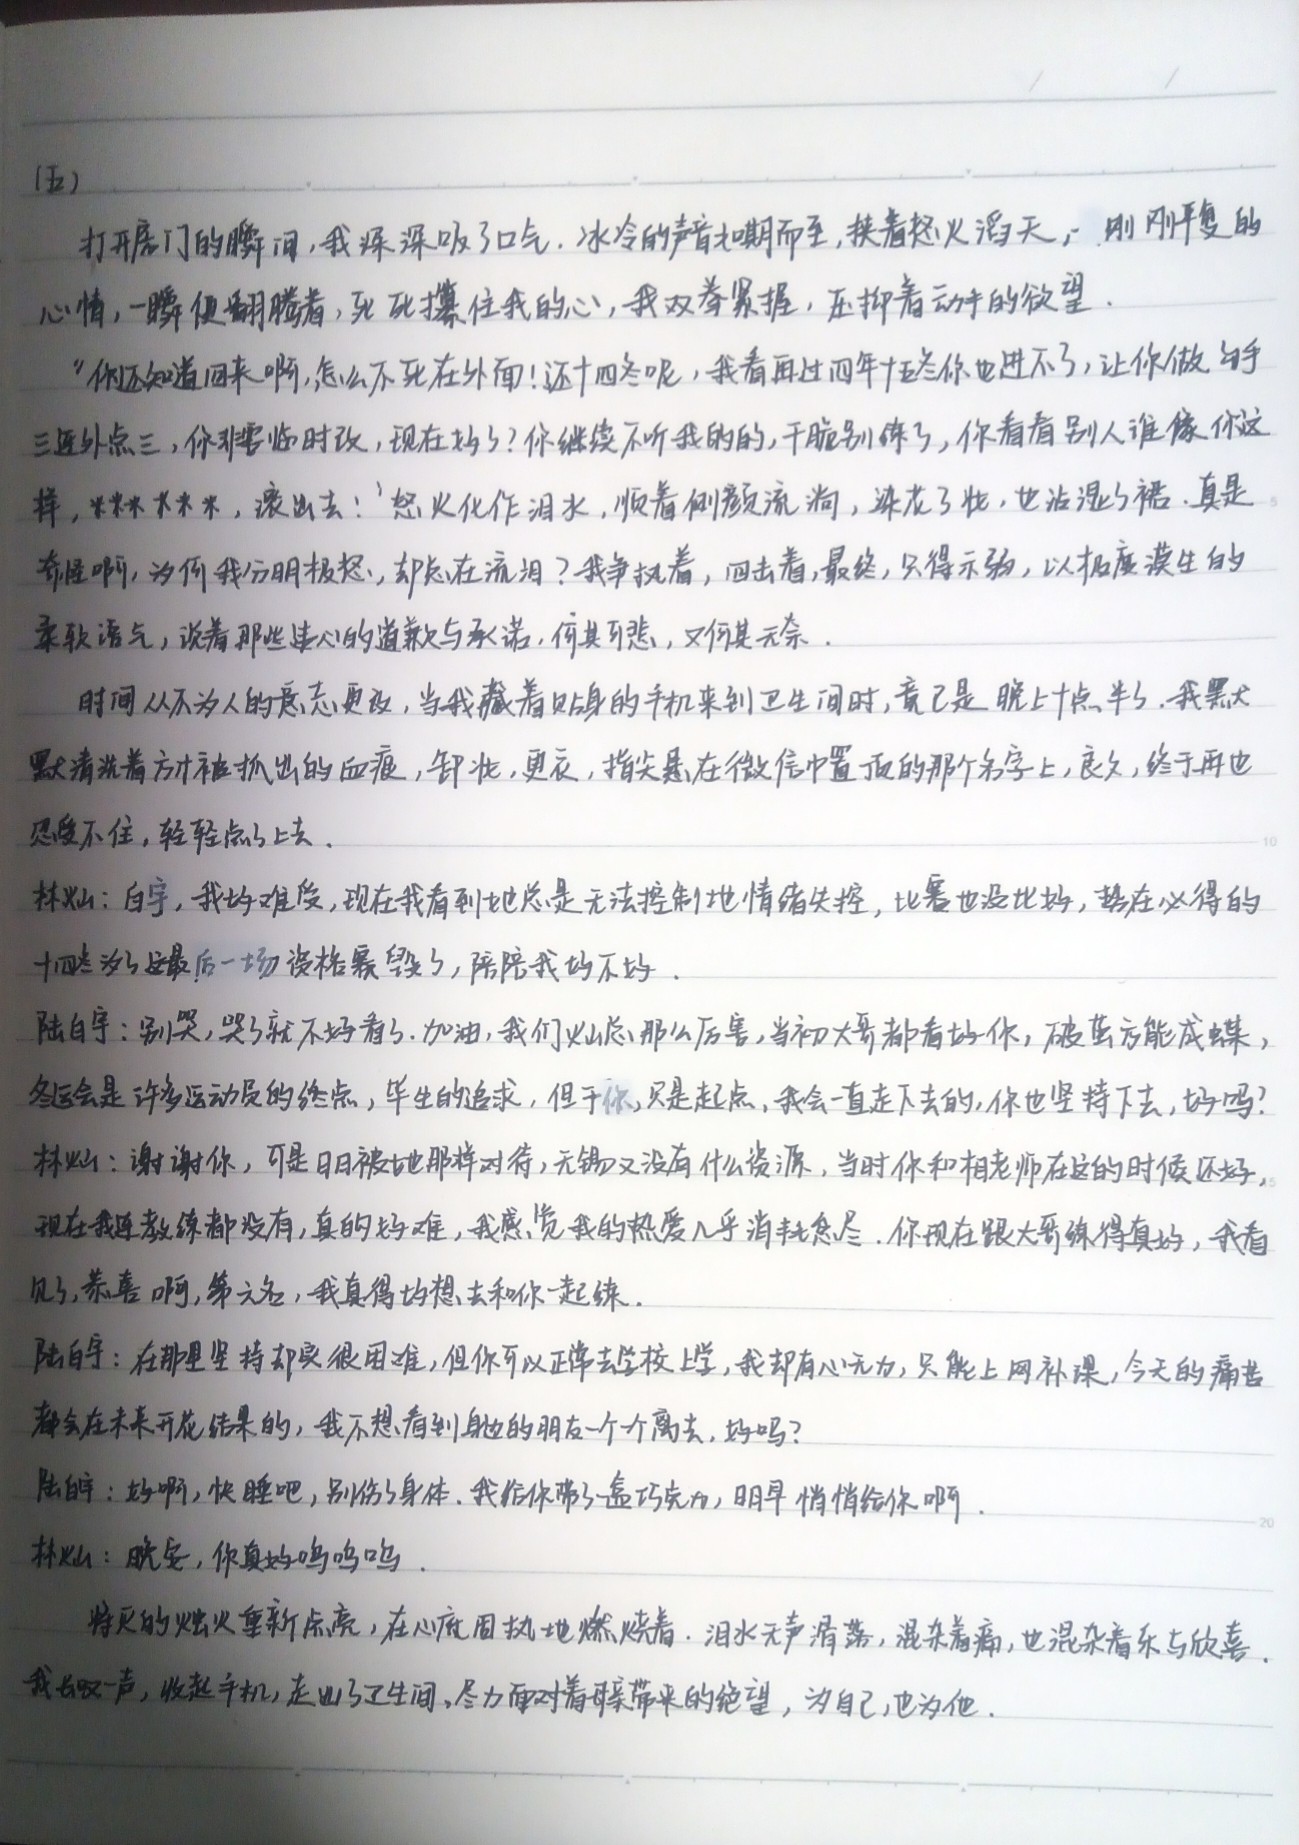 (五)
打开房门的瞬间，我深深吸了口气．冰冷的声音如期而至，挟着怒火滔天，刚刚平复的
心情，一瞬便翻腾着，死死攥住我的心，我双拳紧握，压抑着动手的欲望．
“你还知道回来啊，怎么不死在外面！还十四冬呢，我看再过四年十五冬你也进不了，让你做勾手
三连外点三，你非要临时改，现在好了？你继续不听我的的，干脆别练了，你看看别人谁像你这
样，******，滚出去！”怒火化作泪水，顺着侧颜流淌，染花了妆，也沾湿了裙．真是
奇怪啊，为何我分明极怒，却总在流泪？我争执着，回击着，最终，只得示弱，以极度漠生的
柔软语气，说着那些违心的道歉与承诺．何其可悲，又何其无奈．
时间从不为人的意志更改，当我藏着贴身的手机来到卫生间时，竟已是晚上十点半了．我默
默清洗着方才被抓出的血痕，卸妆，更衣，指尖悬在微信中置顶的那个名字上，良久，终于再也
忍受不住，轻轻点了上去．
林灿：白宇，我好难受，现在我看到她总是无法控制地情绪失控，比赛也没比好，势在必得的
十四冬为了这最后一场资格赛毁了，陪陪我好不好．
陆白宇：别哭，哭了就不好看了．加油，我们灿总那么厉害，当初大哥都看好你，破茧方能成蝶，
冬运会是许多运动员的终点，毕生的追求，但于你，只是起点，我会一直走下去的，你也坚持下去，好吗？
林灿：谢谢你，可是日日被她那样对待，无锡又没有什么资源，当时你和相老师在这的时候还好，
现在我连教练都没有，真的好难，我感觉我的热爱几乎消耗怠尽．你现在跟大哥练得真好，我看
见了，恭喜啊，第六名，我真得好想去和你一起练．
陆白宇：在那里坚持却实很困难，但你可以正常去学校上学，我却有心无力，只能上网补课，今天的痛苦
都会在未来开花结果的，我不想看到身边的朋友一个个离去，好吗？
陆白宇：好啊，快睡吧，别伤了身体．我给你带了盒巧克力，明早悄悄给你啊．
林灿：晚安，你真好呜呜呜．
将灭的烛火重新点亮，在心底固执地燃烧着．泪水无声滑落，混杂着痛，也混杂着乐与欣喜．
我长叹一声，收起手机，走出了卫生间，尽力面对着母亲带来的绝望，为自己，也为他．